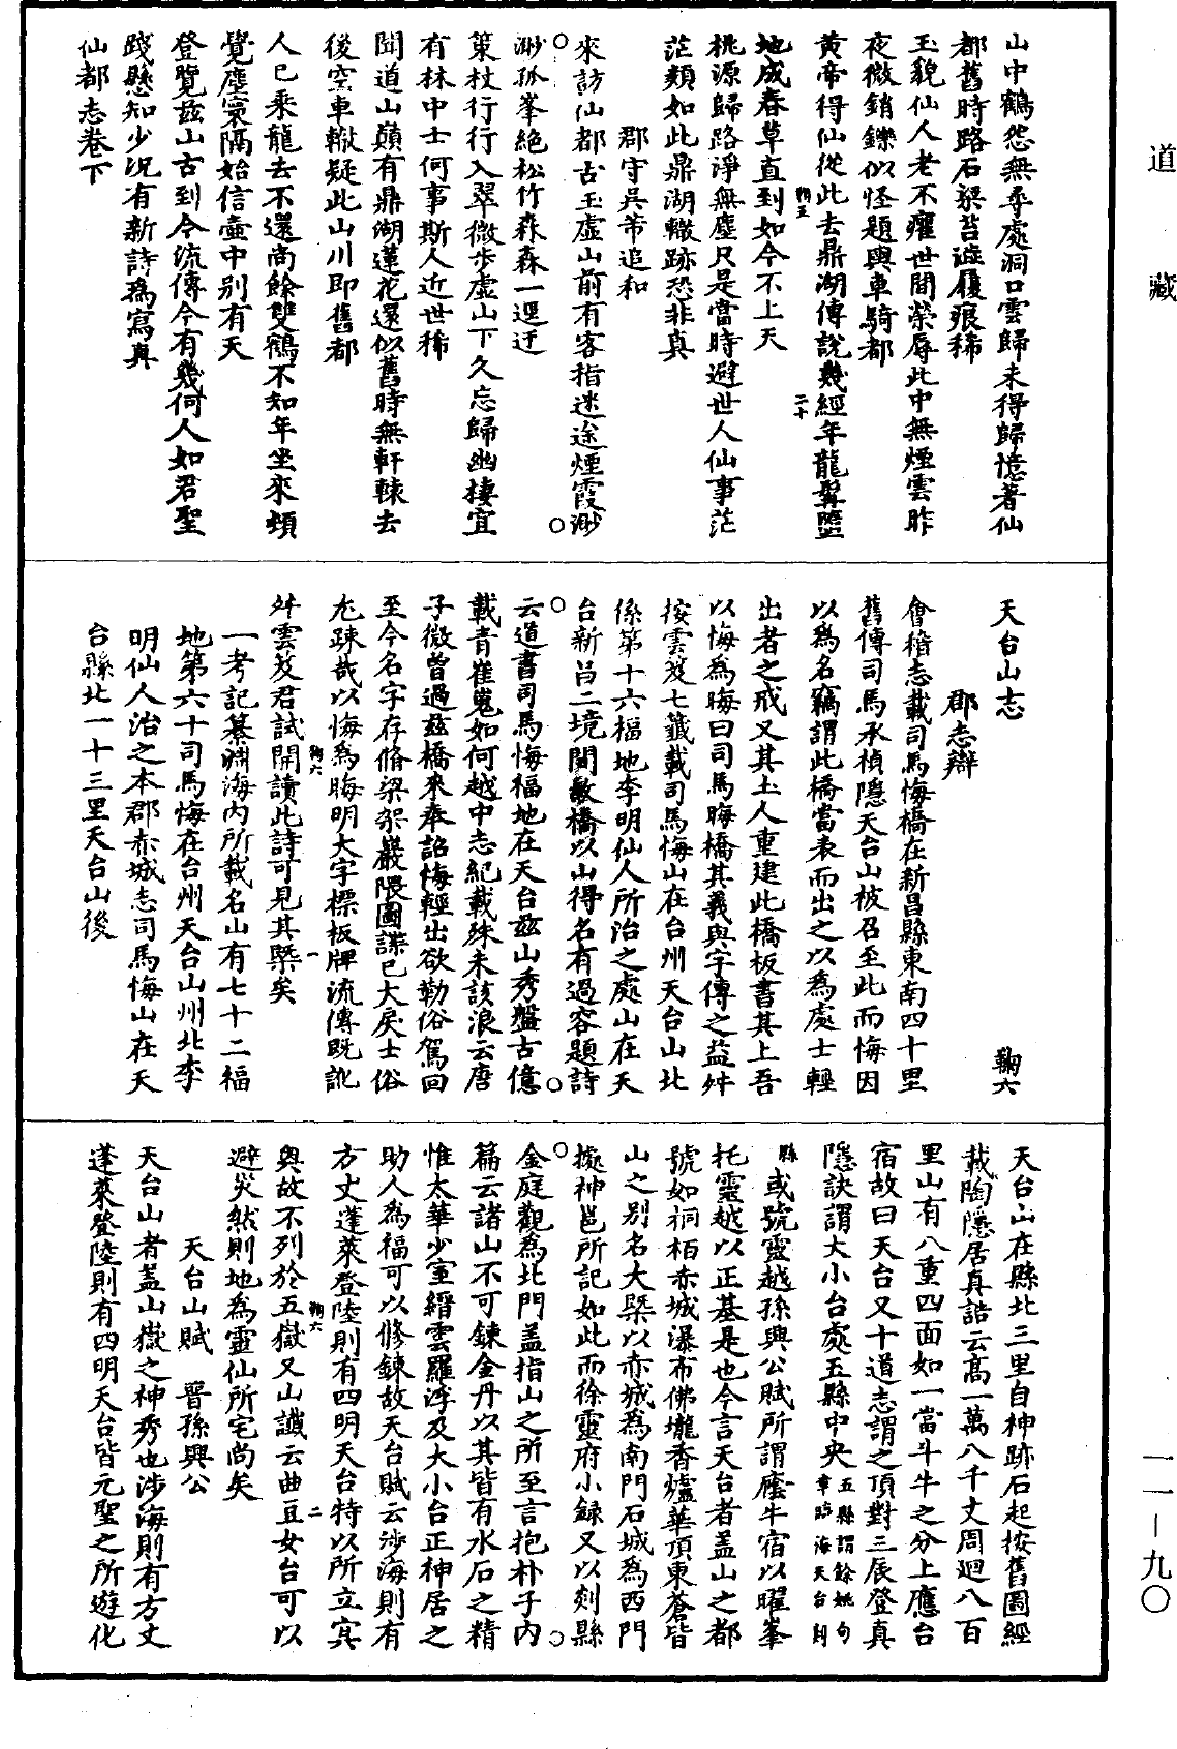 道藏
山中鶴怨無尋處洞口雲歸未得歸憶著仙
都舊時路石梁苔澁屐痕稀
玉貌仙人老不癯世間榮辱此中無煙雲昨
夜微銷鑠似怪題輿車騎都
黃帝得仙從此去鼎湖傳說幾經年龍髯墮
地成春草直到如今不上天
桃源歸路淨無塵只是當時避世人仙事茫
茫類如此鼎湖轍跡恐非真
郡守吳芾追和
來訪仙都古玉虛山前有客指迷途煙霞渺
渺孤峯絕松竹森森一逕迂
策杖行行入翠微步虛山下久忘歸幽棲宜
有林中士何事斯人近世稀
聞道山巔有鼎湖蓮花還似舊時無軒轅去
後空車轍疑此山川即舊都
人已乘龍去不還尚餘雙鶴不知年坐來頓
覺塵寰隔始信壺中別有天
登覽茲山古到今流傳今有幾何人如君聖
踐懸知少況有新詩為寫真
仙都志卷下
天台山志 鞠六
郡志辯
會稽志載司馬悔橋在新昌縣東南四十里
舊傳司馬承禎隱天台山被召至此而悔因
以為名竊謂此橋當表而出之以為處士輕
出者之戒又其土人重建此橋板書其上吾
以悔為晦曰司馬晦橋其義與字傳之益舛
按雲笈七籤載司馬悔山在台州天台山北
係第十六福地李明仙人所治之處山在天
台新昌二境間故橋以山得名有過客題詩
云道書司馬悔福地在天台茲山秀盤古億
載青崔嵬如何越中志紀載殊未該浪云唐
子微曾過茲橋來奉詔悔輕出欲勒俗駕回
至今名字存脩梁架巖隈圖諜已大戾士俗
尤踈哉以悔為晦明大字標板牌流傳既訛
舛雲笈君試開讀此詩可見其槩矣
一考記纂淵海內所載名山有七十二福
地第六十司馬悔在台州天台山州北李
明仙人治之本郡赤城志司馬悔山在天
台縣北一十三里天台山後
天台山在縣北三里自神跡石起按舊圖經
載陶隱居真誥云高一萬八千丈周迴八百
里山有八重四面如一當斗牛之分上應台
宿故曰天台又十道志謂之頂對三辰登真
隱訣謂大小台處五縣中央五縣謂餘姚句章臨海天台剡
縣或號靈越孫興公賦所謂應牛宿以曜峯
托靈越以正基是也今言天台者蓋山之都
號如桐栢赤城瀑布佛壠香爐華頂東蒼皆
山之別名大槩以赤城為南門石城為西門
據神邕所記如此而徐靈府小錄又以剡縣
金庭觀為北門蓋指山之所至言抱朴子內
篇云諸山不可鍊金丹以其皆有水石之精
惟太華少室縉雲羅浮及大小台正神居之
助人為福可以修鍊故天台賦云涉海則有
方丈蓬萊登陸則有四明天台特以所立冥
奥故不列於五嶽又山讖云曲豆女台可以
避災然則地為靈仙所宅尚矣
天台山賦 晉孫興公
天台山者蓋山嶽之神秀也涉海則有方丈
蓬萊登陸則有四明天台皆元聖之所遊化
一一－九〇